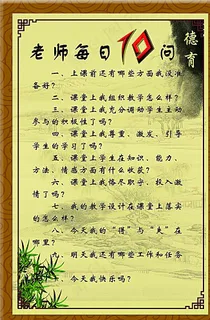 德育
老师每日10问
一、上课前还有哪些方面我没准
备好？
二、课堂上我组织教学怎么样？
三、课堂上我充分调动学生主动
参与的积极性了吗？
四、课堂上我尊重、激发、引导
学生的学习了吗？
五、课堂上学生在知识、能力、
方法、情感方面有什么收获？
六、课堂上我恪尽职守、投入激
情了吗？
七、我的教学设计在课堂上落实
的怎么样？
八、今天我的“得”与“失”在
哪里？
明天我还有哪些工作和任务
今天我快乐吗？